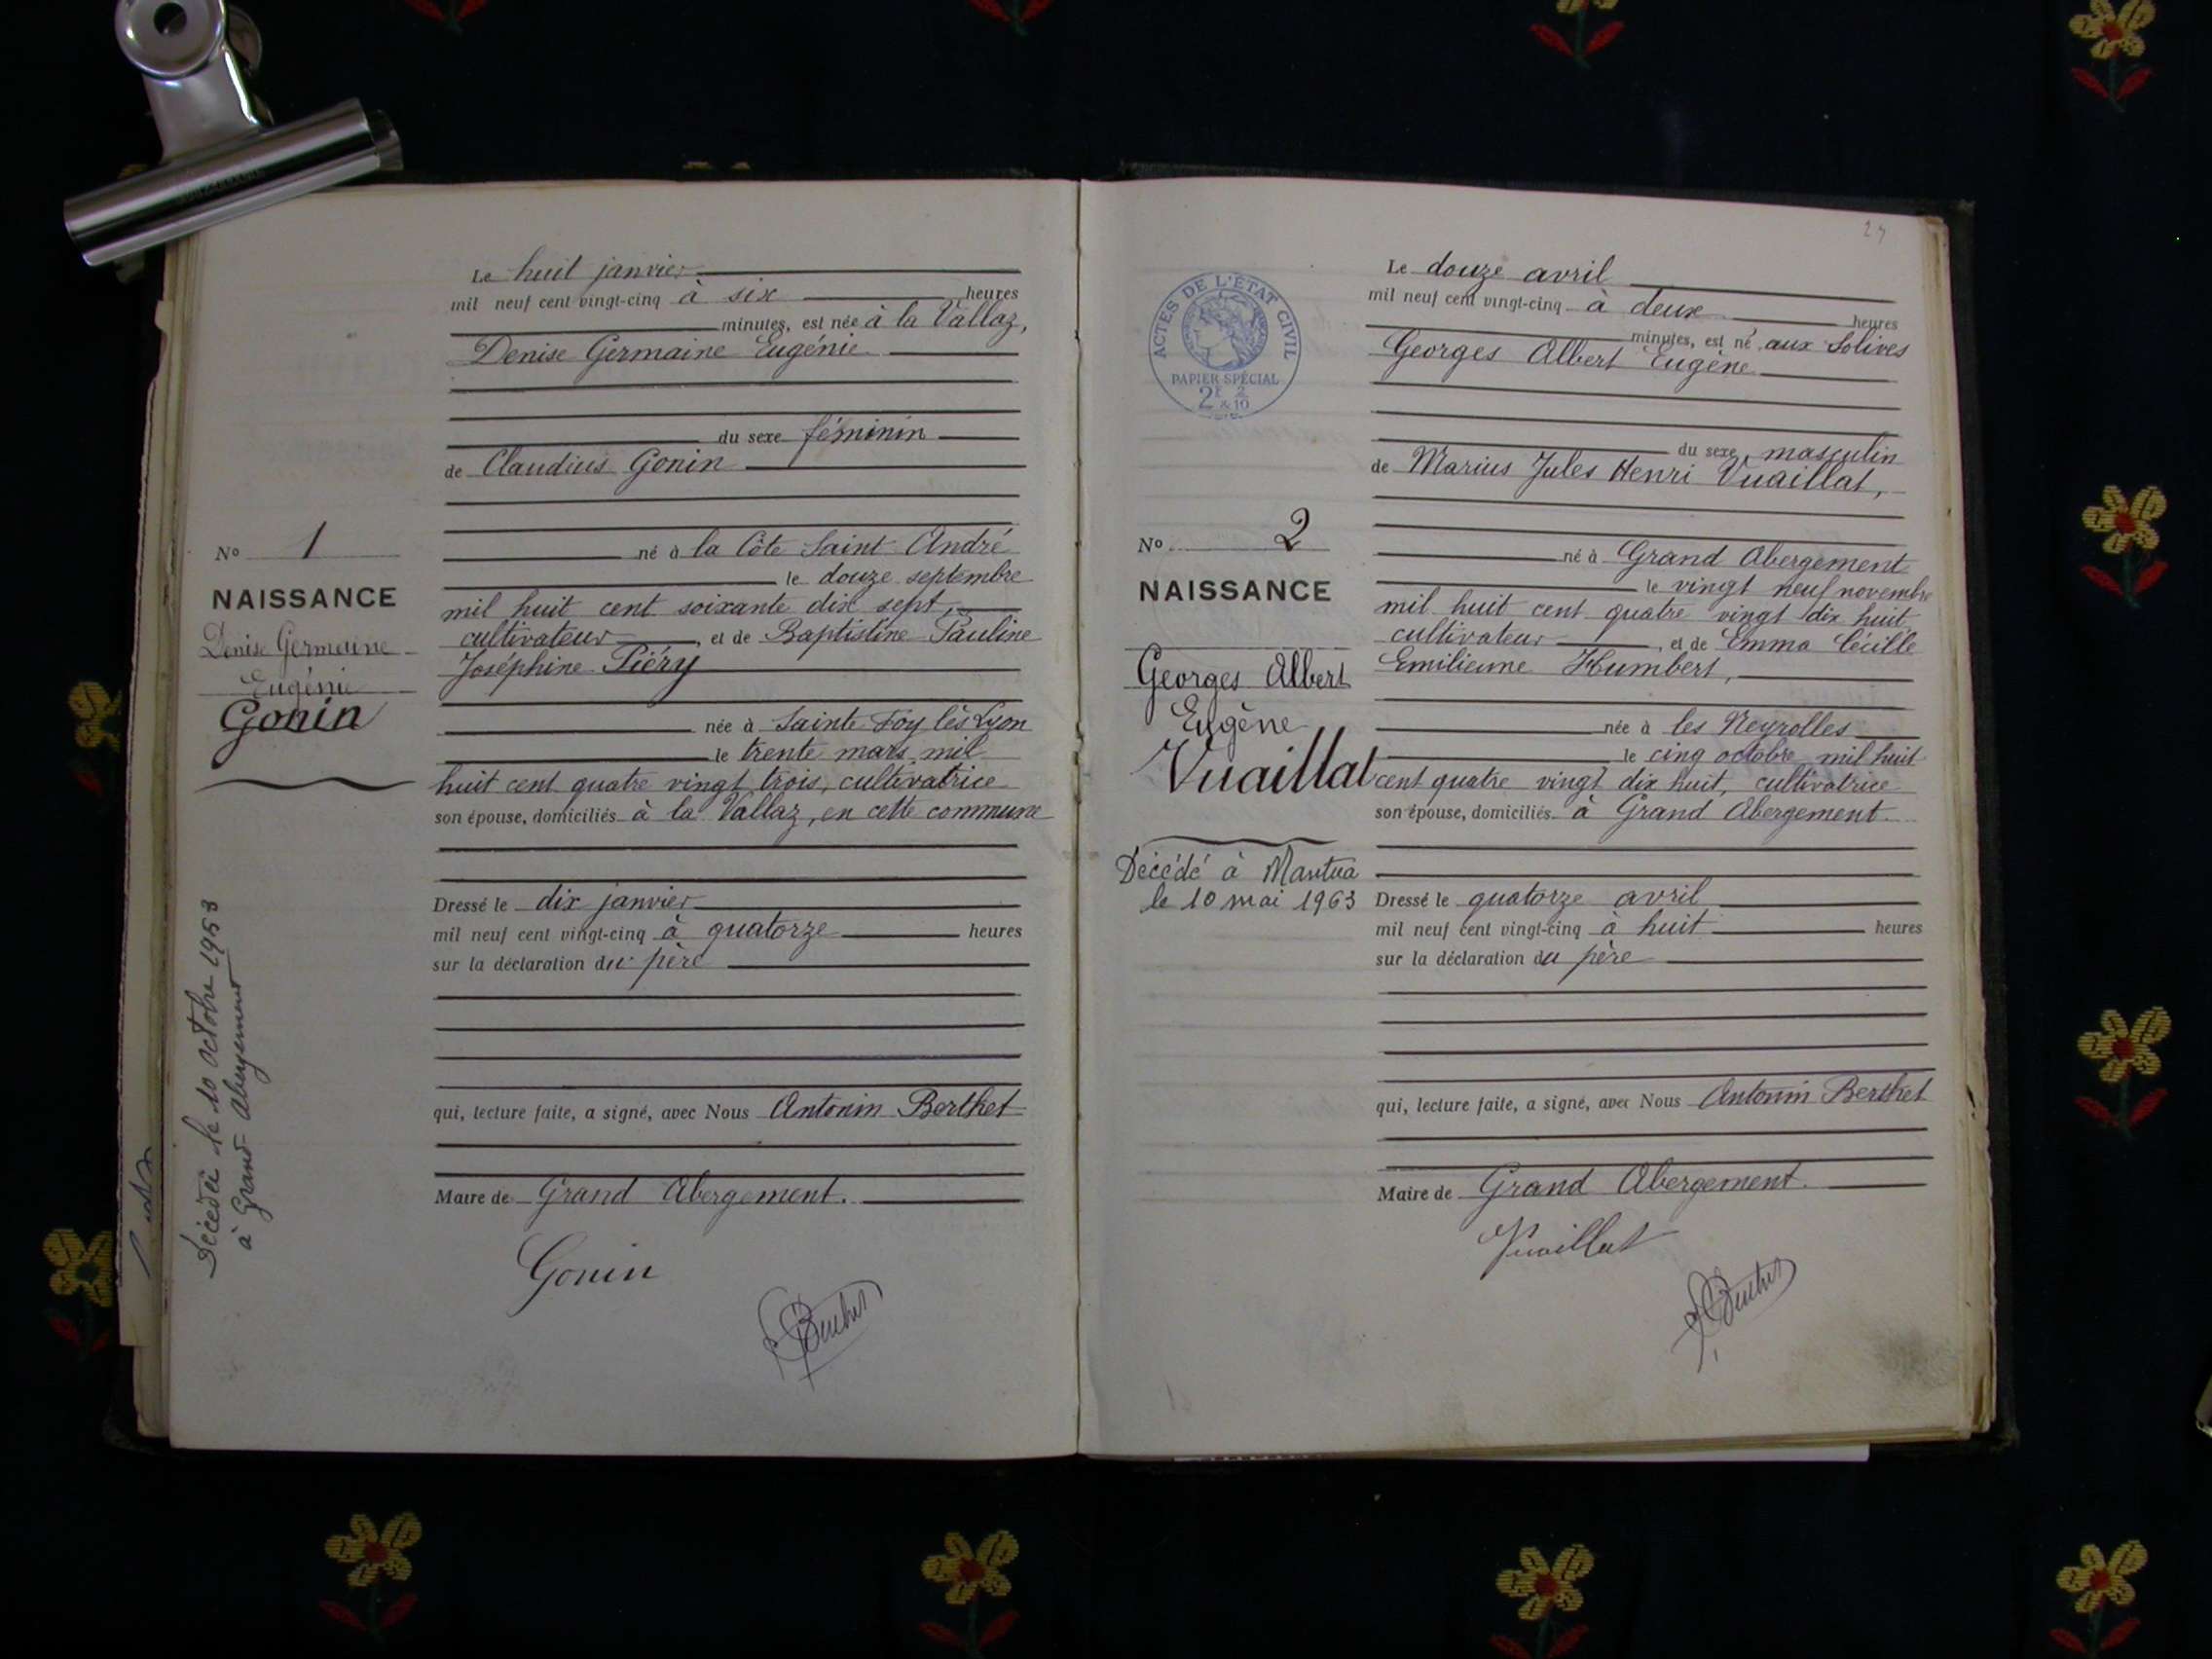 Le huit janvier
mil neuf cent vingt-cinq à six heures
minutes, est née à la Vallaz,
Denise Germaine Eugénie
du sexe féminin
de Claudius Gonin
né à la Côte Saint André
le douze septembre
mil huit cent soixante dix sept,
cultivateur, et de Baptistine Pauline
Joséphine Piéry
née à Sainte Foy lès Lyon
le trente mars mil
huit cent quatre vingt trois, cultivatrice
son épouse, domiciliés à la Vallaz, en cette commune
Dressé le dix janvier
mil neuf cent vingt-cinq à quatorze heures
sur la déclaration du père
qui, lecture faite, a signé, avec Nous Antonin Berthet
Maire de Grand Abergement.
Gonin
No 1
NAISSANCE
Denise Germaine
Eugénie
Gonin
Décédée le 10 octobre 1953
à Grand-Abergement
27
ACTES DE L'ÉTAT CIVIL
PAPIER SPÉCIAL
2F 2/10
Le douze avril
mil neuf cent vingt-cinq à deux heures
minutes, est né aux Solives
Georges Albert Eugène
du sexe masculin
de Marius Jules Henri Vuaillat,
né à Grand Abergement
le vingt neuf novembre
mil huit cent quatre vingt dix huit
cultivateur, et de Emma Cécille
Emilienne Humbert,
née à les Neyrolles
le cinq octobre mil huit
cent quatre vingt dix huit, cultivatrice
son épouse, domiciliés à Grand Abergement.
Dressé le quatorze avril
mil neuf cent vingt-cinq à huit heures
sur la déclaration du père
qui, lecture faite, a signé, avec Nous Antonin Berthet
Maire de Grand Abergement.
Vuaillat
No 2
NAISSANCE
Georges Albert
Eugène
Vuaillat
Décédé à Nantua
le 10 mai 1963